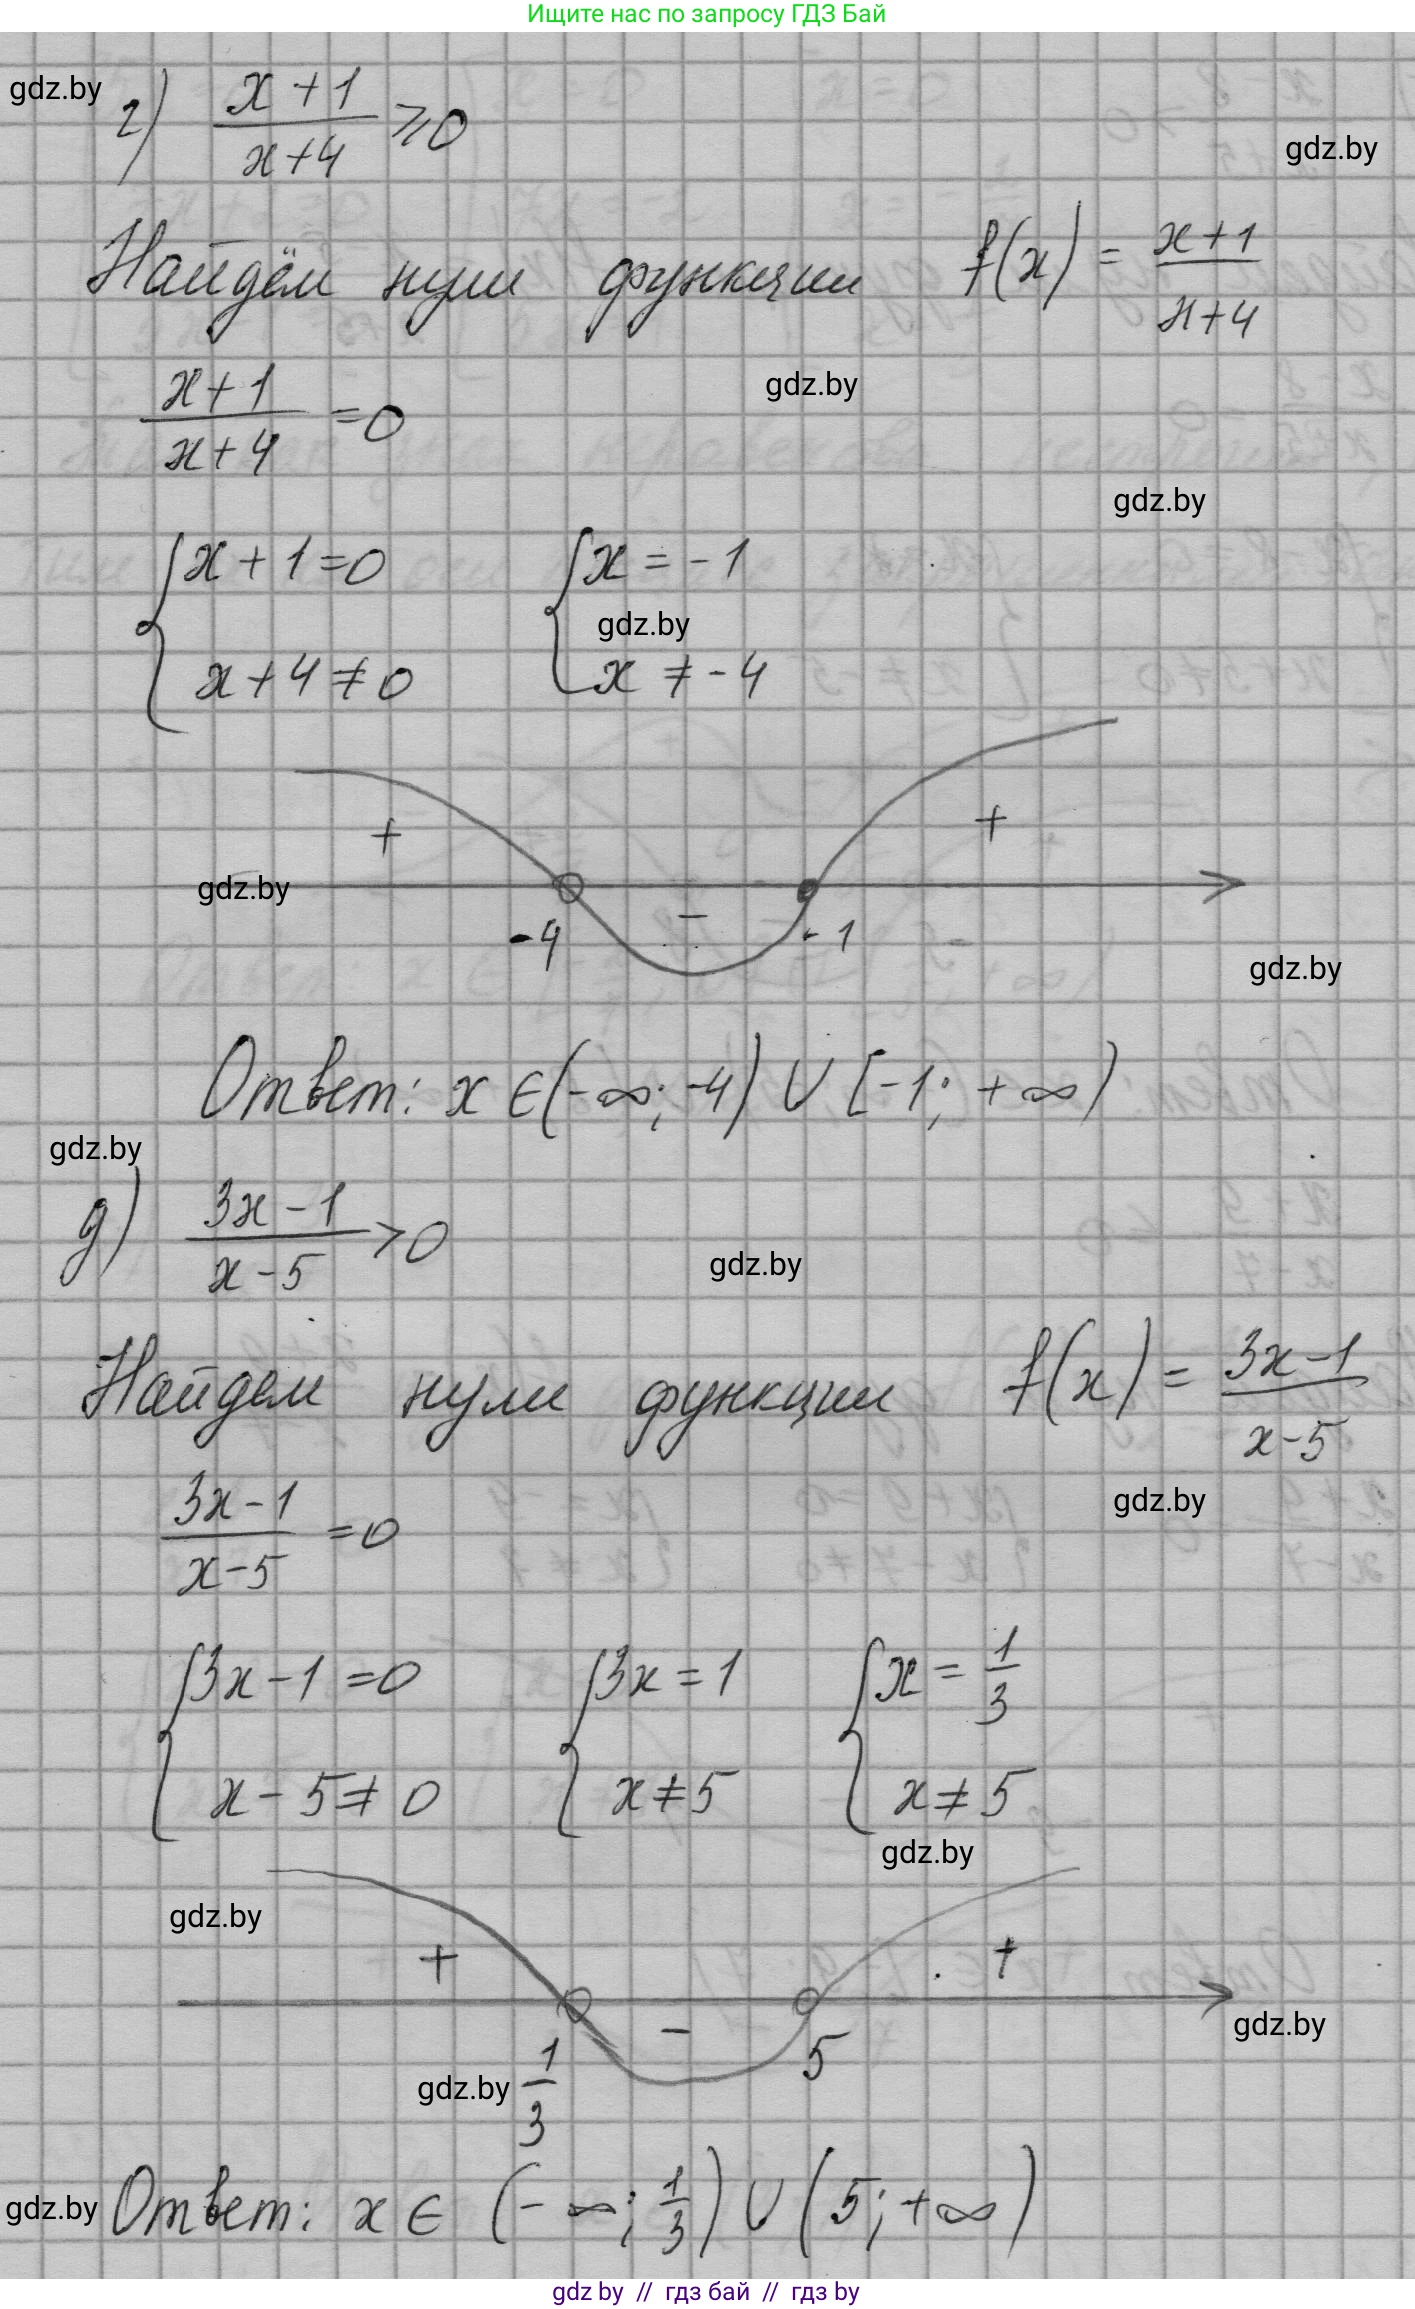 Ищите нас по запросу ГДЗ Бай
gdz.by
г) (x+1)/(x+4) ⩾ 0
gdz.by
Найдём нули функции f(x) = (x+1)/(x+4)
gdz.by
(x+1)/(x+4) = 0
gdz.by
{ x + 1 = 0 { x = -1
gdz.by
x + 4 ≠ 0 x ≠ -4
+ +
gdz.by
-
-4 -1
gdz.by
Ответ: x ∈ (-∞; -4) ∪ [-1; +∞)
gdz.by
д) (3x-1)/(x-5) > 0
gdz.by
Найдем нули функции f(x) = (3x-1)/(x-5)
gdz.by
(3x-1)/(x-5) = 0
{ 3x - 1 = 0 { 3x = 1 { x = 1/3
x - 5 ≠ 0 x ≠ 5 x ≠ 5
gdz.by
gdz.by
+ +
-
gdz.by
gdz.by 1/3 5
gdz.by
Ответ: x ∈ (-∞; 1/3) ∪ (5; +∞)
gdz by // гдз бай // гдз by